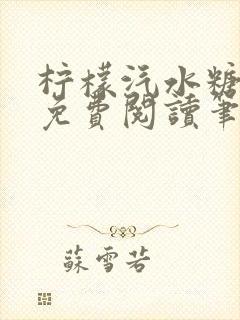 柠檬汽水糖
免費閱讀筆
蘇雪若